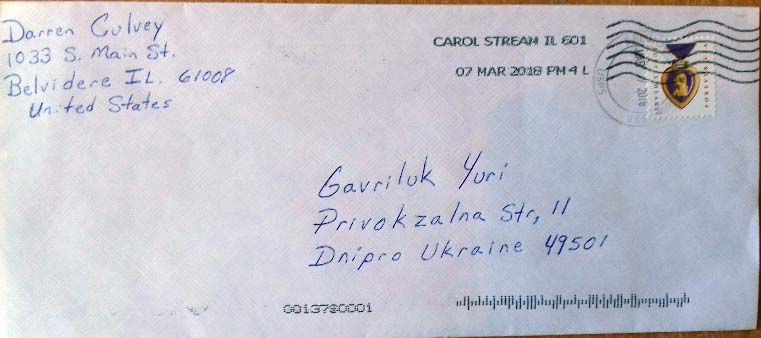 Darren Culvey
1033 S. Main St.
Belvidere IL. 61008
United States
CAROL STREAM IL 601
07 MAR 2018 PM 4 L
PURPLE HEART
FOREVER USA
USPS
2018
Gavriluk Yuri
Privokzalna Str, 11
Dnipro Ukraine 49501
0013780001